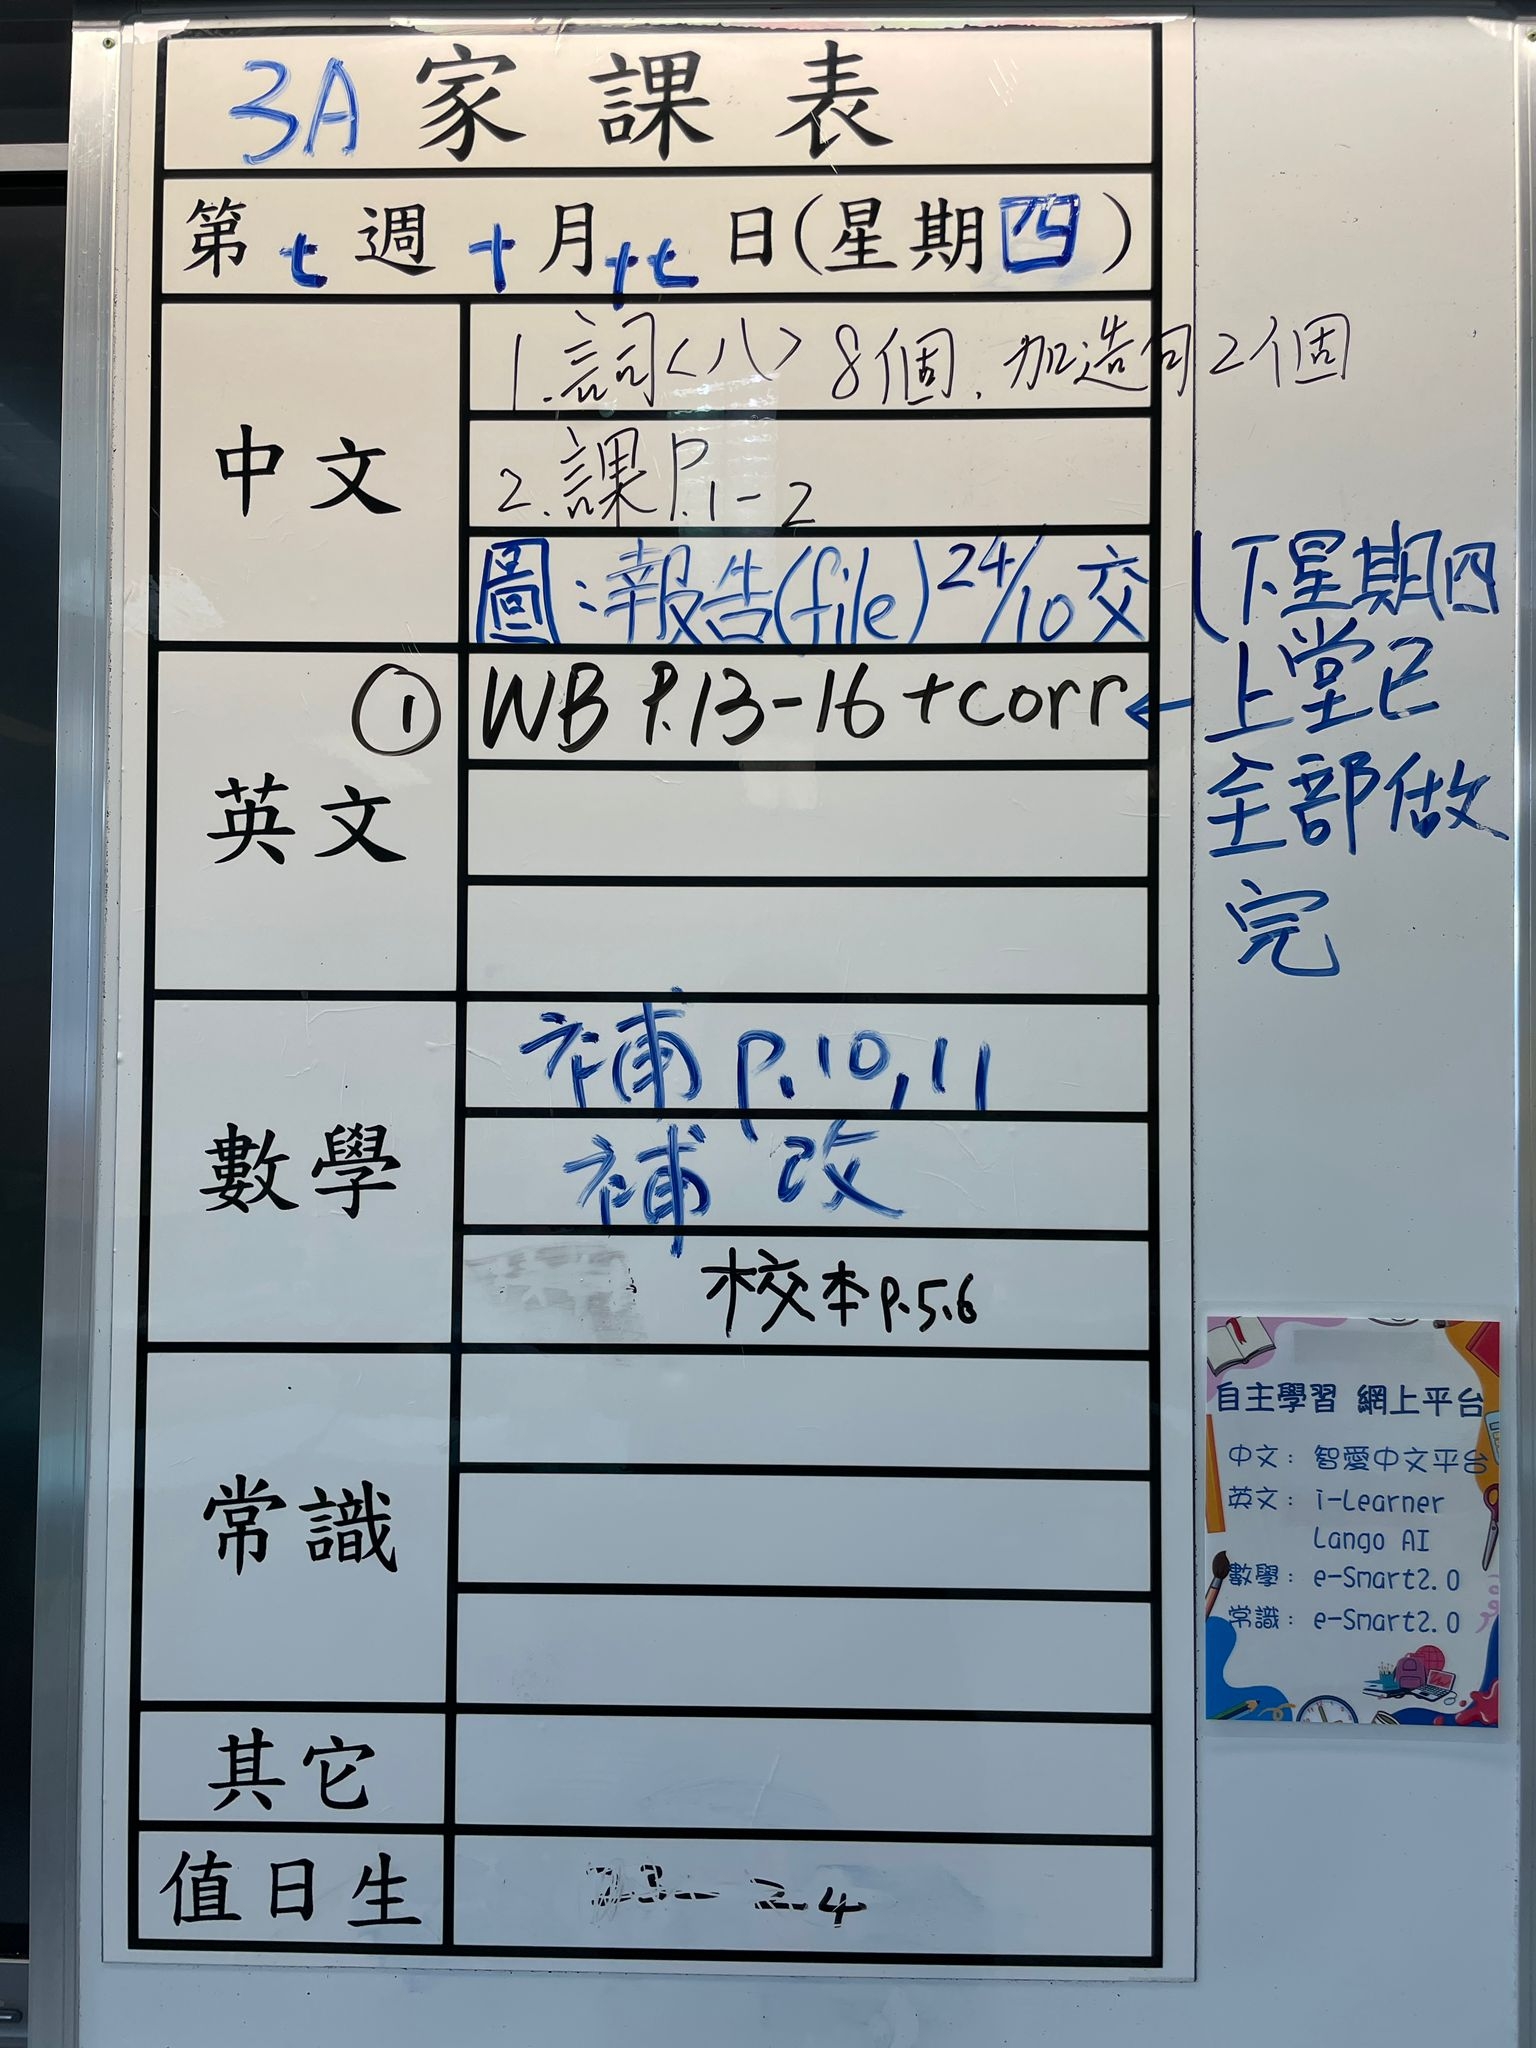 3A 家課表
第七週十月十七日(星期四)
中文
1.詞<八> 8個, 加造句2個
2.課P.1-2
圖:報告(file) 24/10交 (下星期四
英文
① WB P.13-16 +corr ← 上堂已
全部做
完
數學
補 P.10,11
補 改
校本P.5,6
常識
其它
值日生
23- 24
自主學習 網上平台
中文: 智愛中文平台
英文: i-Learner
Lango AI
數學: e-Smart2.0
常識: e-Smart2.0